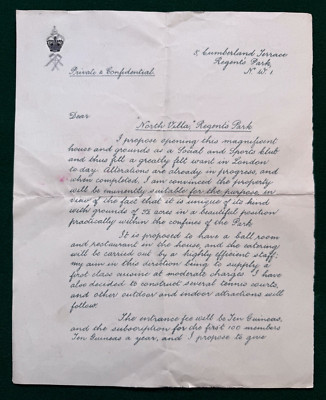 8 Cumberland Terrace
Regent's Park
N.W.1
Private & Confidential.
Dear
"North Villa," Regent's Park
I propose opening this magnificent
house and grounds as a Social and Sports Club
and thus fill a greatly felt want in London
to day. Alterations are already in progress, and
when completed, I am convinced the property
will be eminently suitable for the purpose, in
view of the fact that it is unique of its kind
with grounds of acres in a beautiful position
practically within the confines of the Park.
It is proposed to have a ball room
and restaurant in the house, and the catering
will be carried out by a highly efficient staff;
my aim in this direction being to supply a
first class cuisine at moderate charges. I have
also decided to construct several tennis courts,
and other outdoor and indoor attractions will
follow.
The entrance fee will be Ten Guineas,
and the subscription for the first 100 members
Ten Guineas a year, and I propose to give